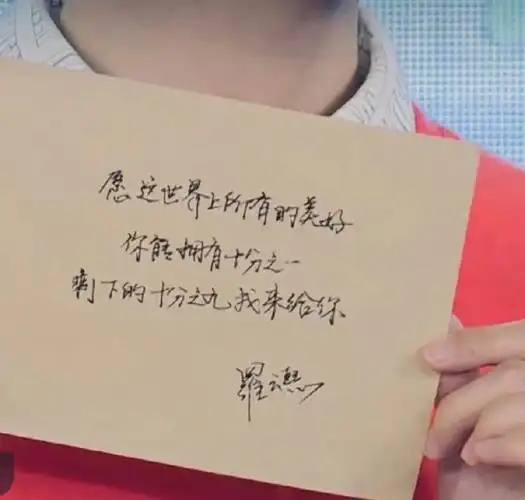 愿这世界上所有的美好
你能拥有十分之一
剩下的十分之九我来给你
罗云熙